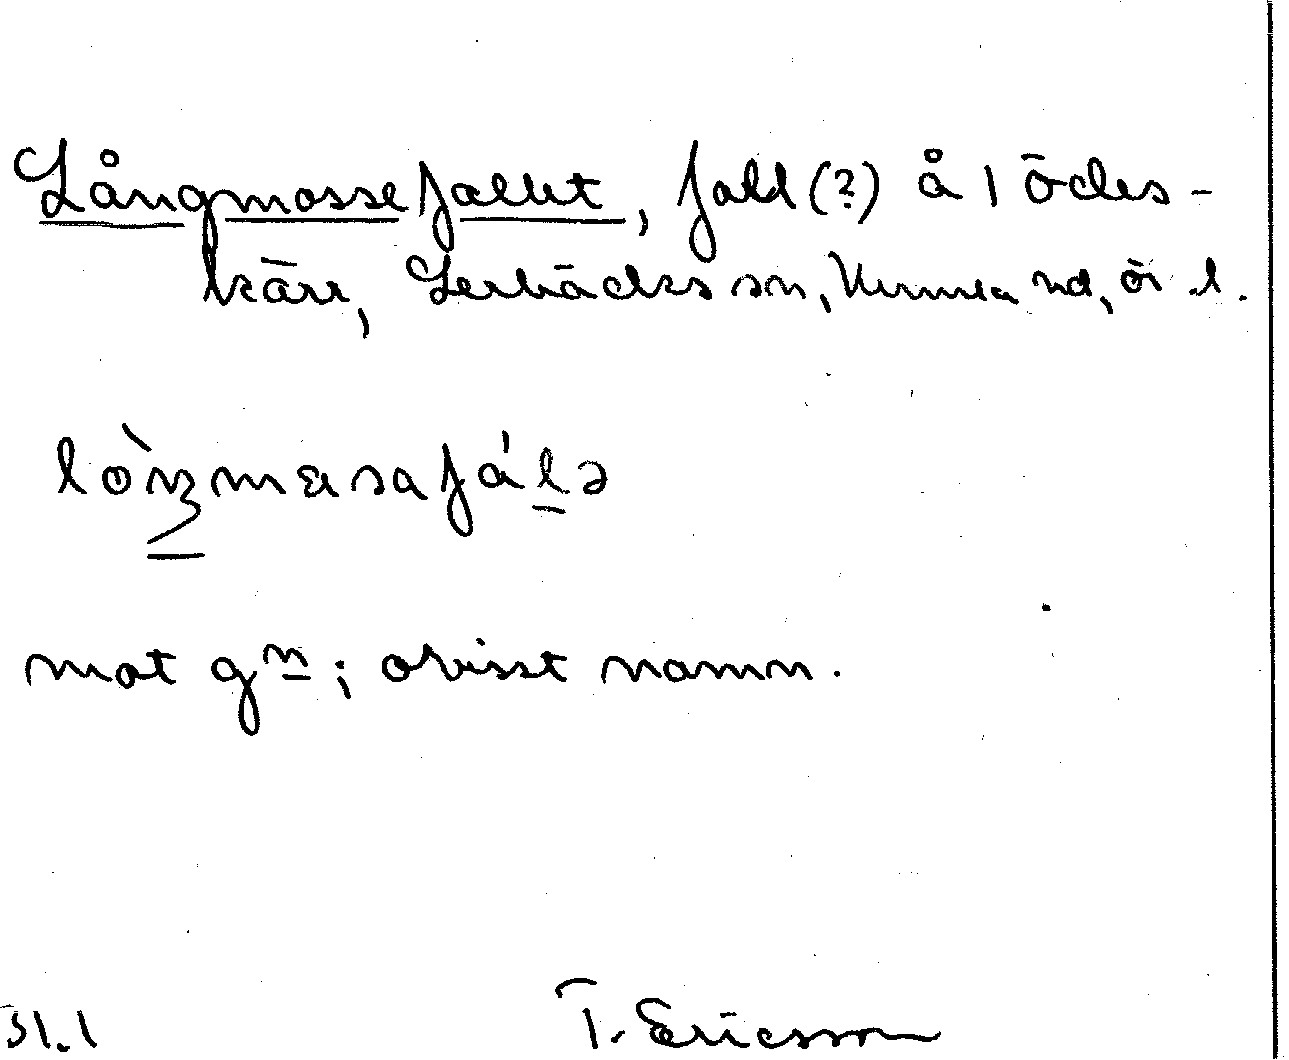 Långmossefallet, fald (?) å 1 Ödes-
kärr, Lerbäcks sn, Kumla hd, ör. l.
mot gn; ovisst namn.
31.1 T. Ericsson